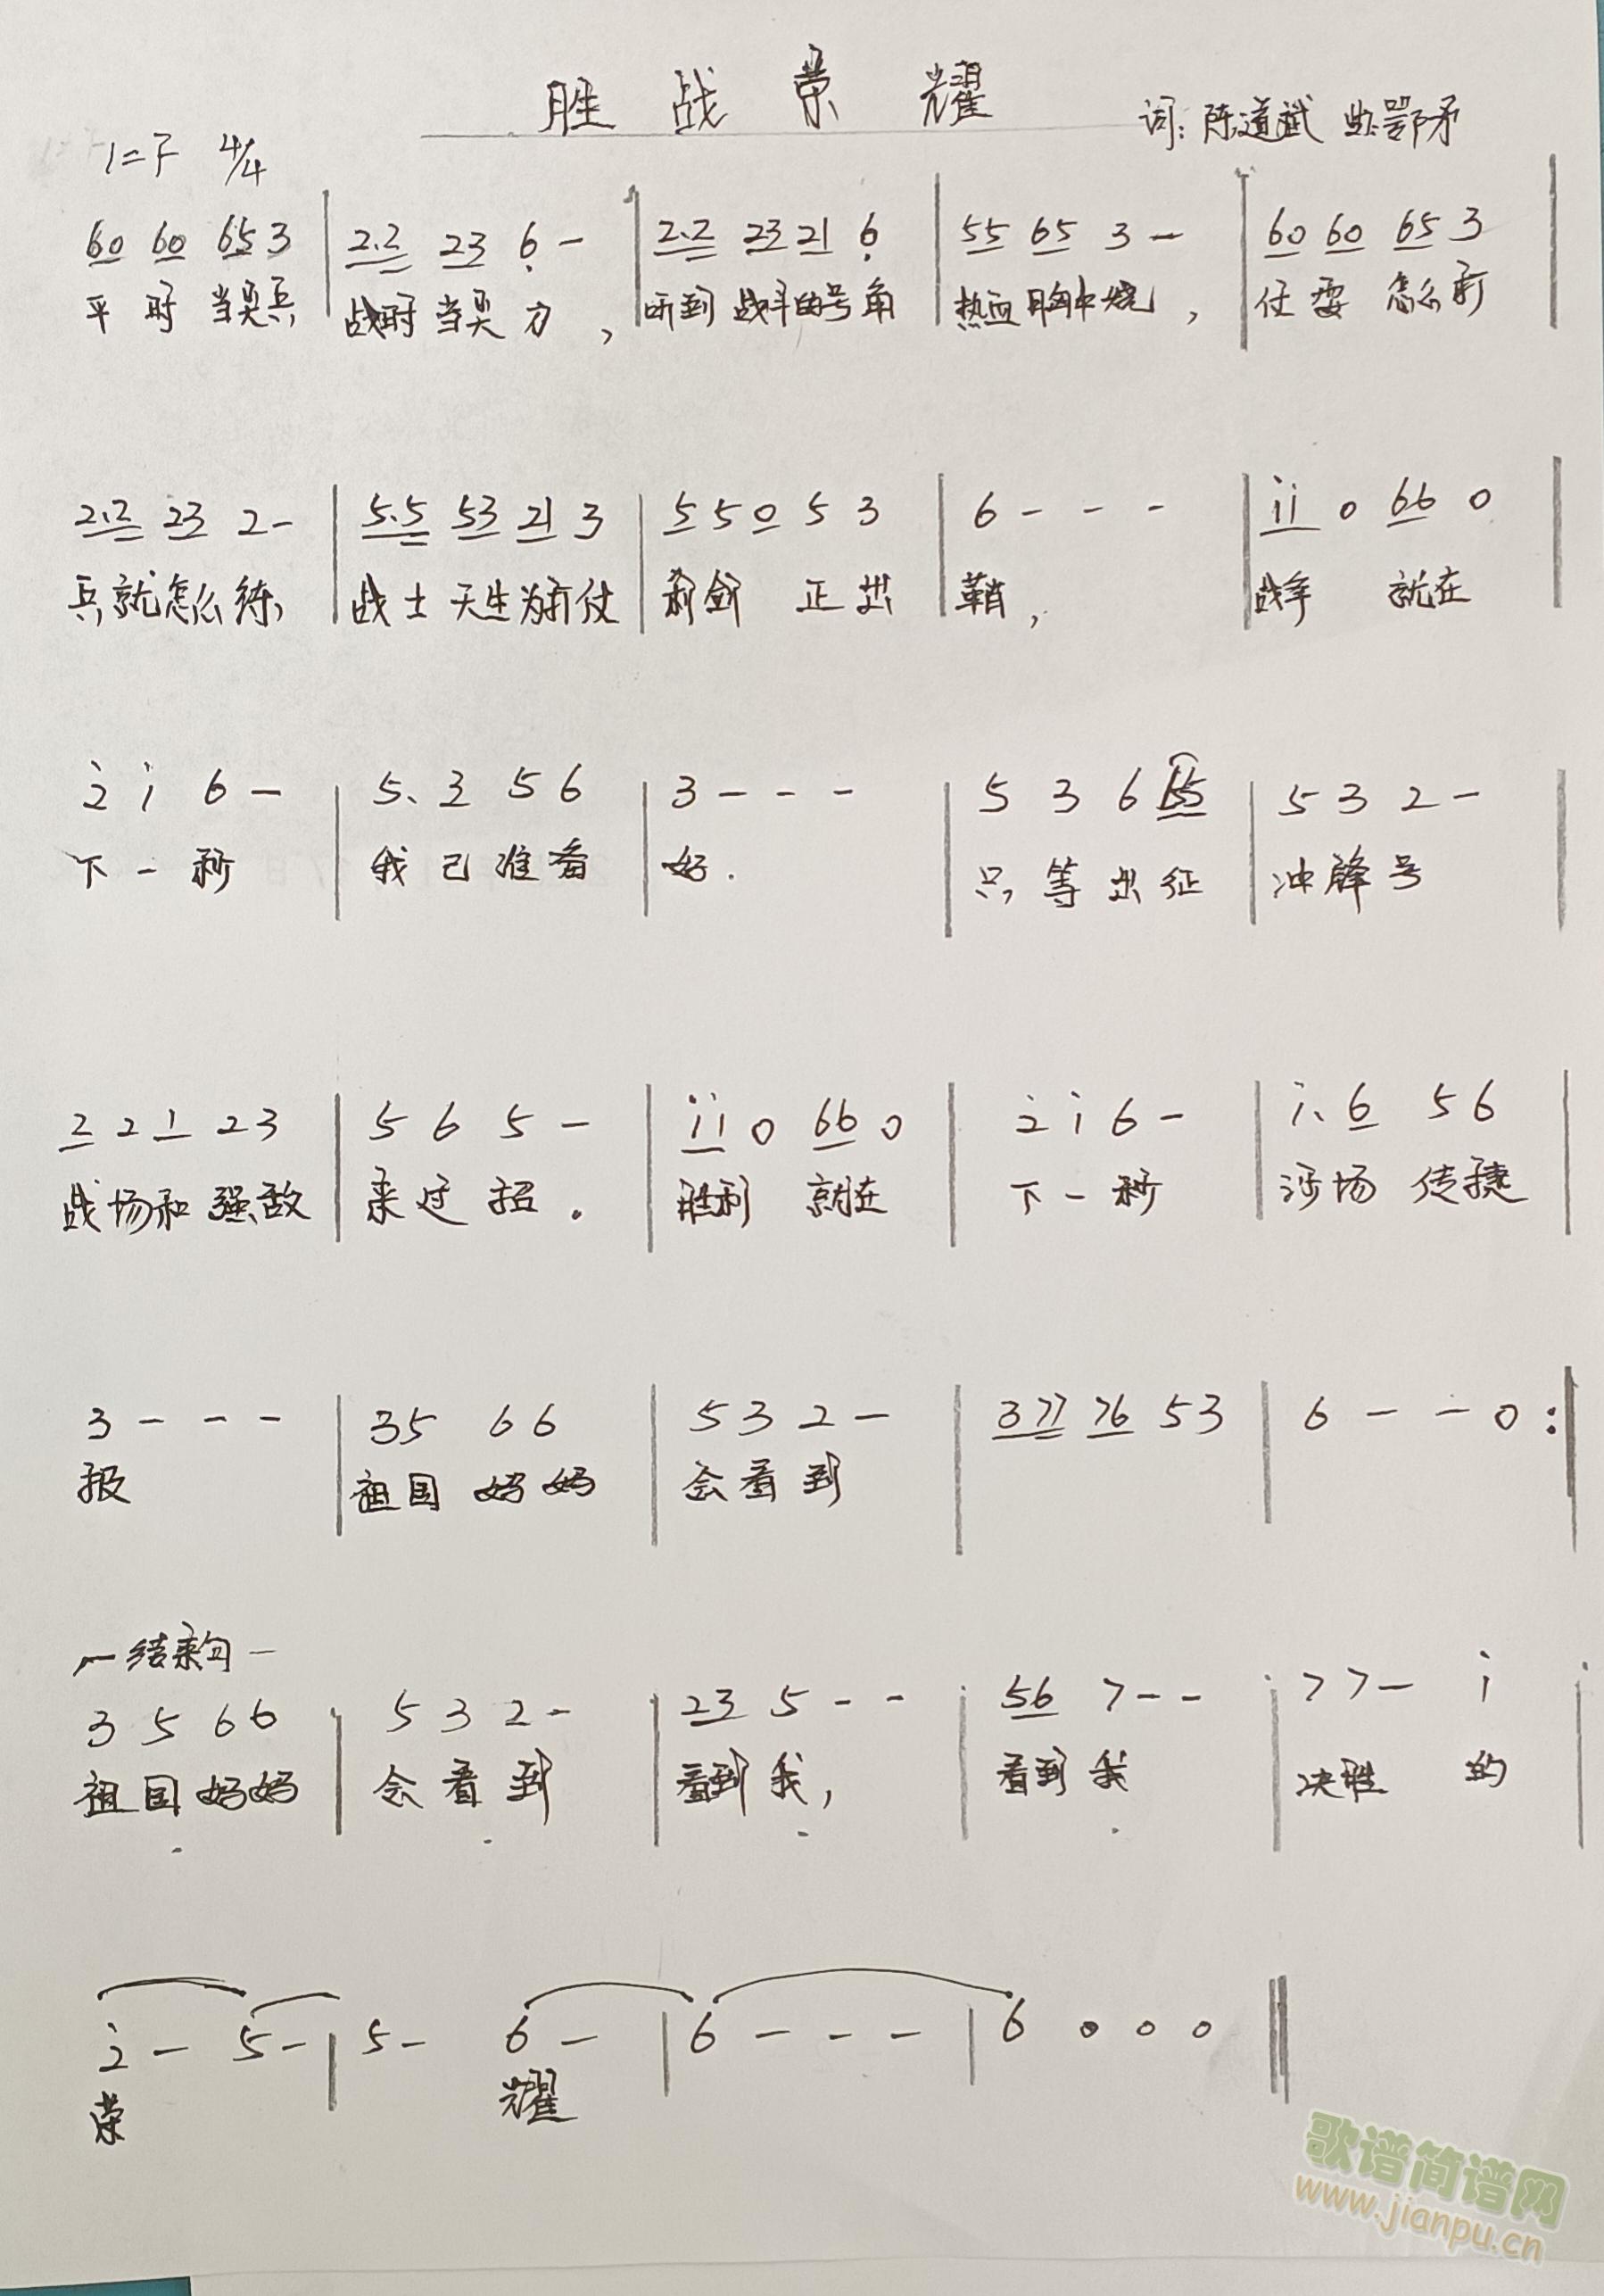 胜战荣耀
词:陈道斌 曲:鄂矛
1=F 4/4
60 60 65 3 | 2.2 23 6 - | 2.2 23 21 6 | 55 65 3 - | 60 60 65 3 |
平时当奥兵 战时当奥刀, 听到战斗的号角 热血胸中烧, 仗要怎么打
2.2 23 2 - | 5.5 53 21 3 | 5 5 0 5 3 | 6 - - - | i i 0 66 0 |
兵就怎么练, 战士天生为打仗 利剑正出 鞘, 战争 就在
2 i 6 - | 5. 3 5 6 | 3 - - - | 5 3 6 65 | 5 3 2 - |
下一秒 我已准备 好. 只等出征 冲锋号
2 2 1 2 3 | 5 6 5 - | i i 0 66 0 | 2 i 6 - | i. 6 5 6 |
战场和强敌 来过招. 胜利 就在 下一秒 沙场传捷
3 - - - | 35 66 | 5 3 2 - | 377 76 53 | 6 - - 0 :|
报 祖国妈妈 会看到
结束句
3 5 6 6 | 5 3 2 - | 23 5 - - | 56 7 - - | 7 7 - i |
祖国妈妈 会看到 看到我, 看到我 决胜 的
2 - 5 - | 5 - 6 - | 6 - - - | 6 0 0 0 ||
荣 耀
歌谱简谱网
www.jianpu.cn